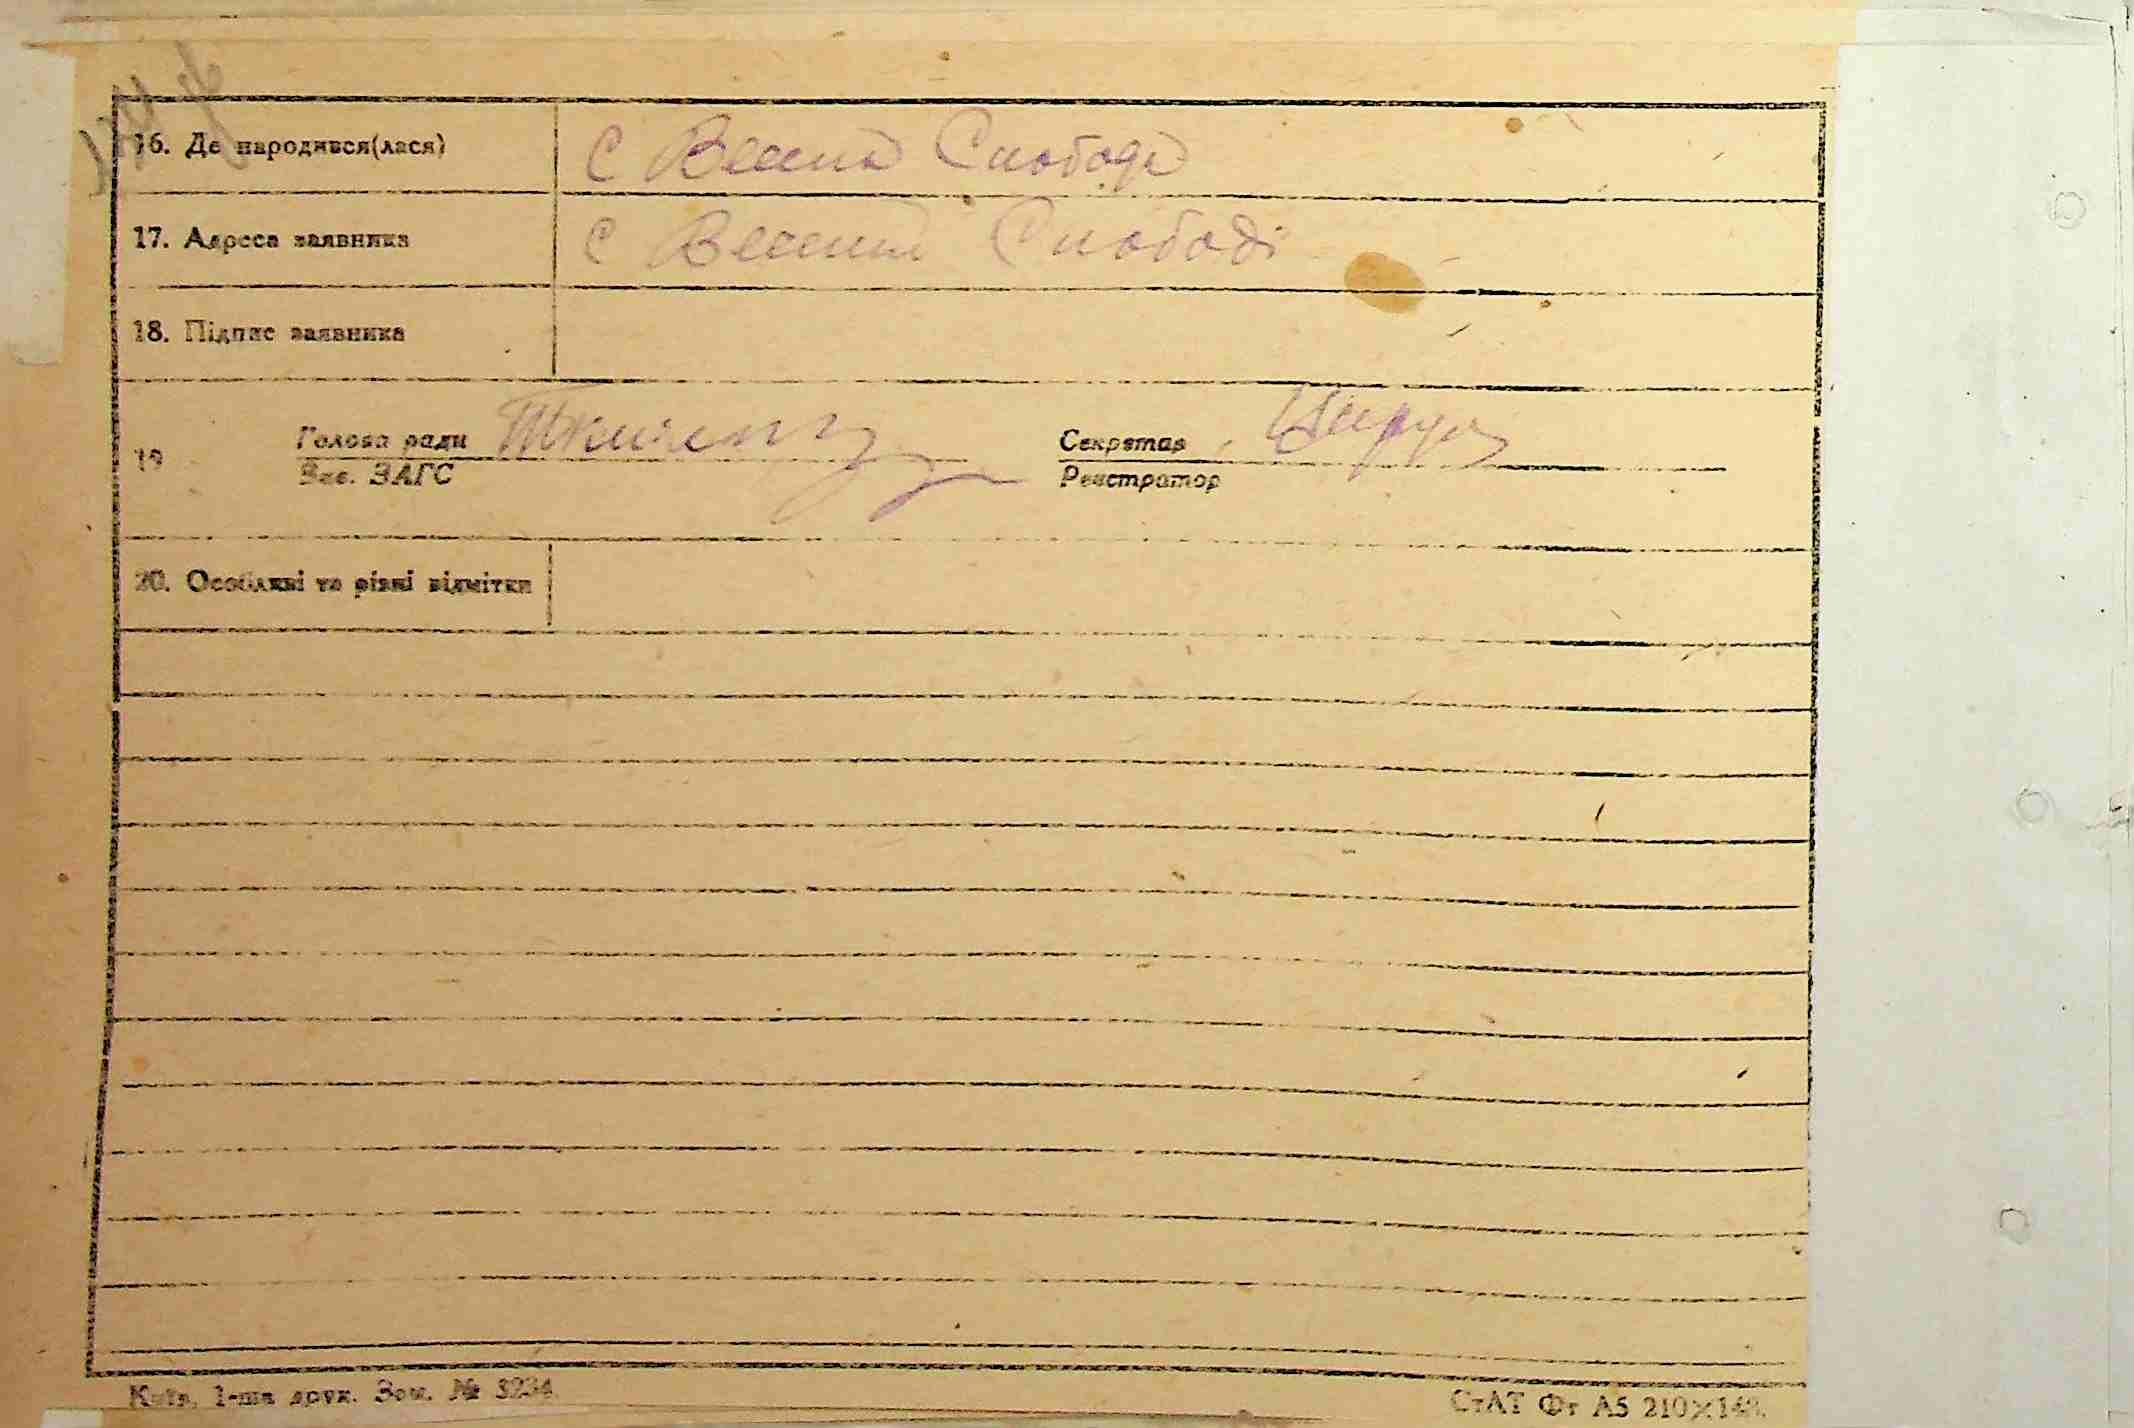 16. Де народився(лася) с Велика Слобода
17. Адреса заявника с Велика Слободі
18. Підпис заявника
19 Голова ради Секретар
Зав. ЗАГС Реєстратор
20. Особливі та різні відмітки
Київ, 1-ша друк. Зам. № 3234. СтАТ Фт А5 210×148.